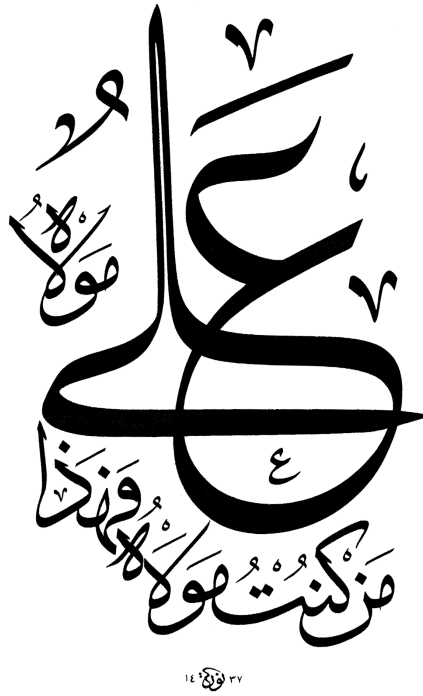 مَنْ كُنْتُ مَوْلَاهُ فَهَذَا
عَلي
مَوْلَاهُ
٣٧ ١٤